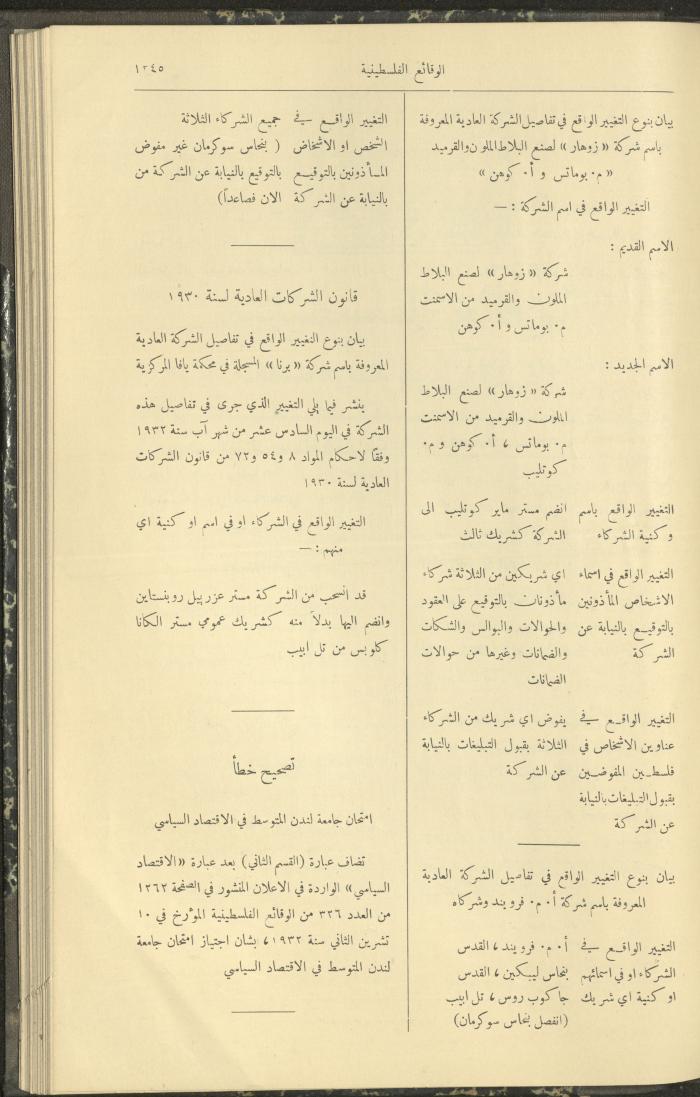 الوقائع الفلسطينية
١٣٤٥
بيان بنوع التغيير الواقع في تفاصيل الشركة العادية المعروفة
باسم شركة «زوهار» لصنع البلاط الملون والقرميد
«م. بوماتس و أ. كوهن»
التغيير الواقع في اسم الشركة : —
الاسم القديم :
شركة «زوهار» لصنع البلاط
الملون والقرميد من الاسمنت
م. بوماتس و أ. كوهن
الاسم الجديد :
شركة «زوهار» لصنع البلاط
الملون والقرميد من الاسمنت
م. بوماتس ، أ. كوهن و م.
كوتليب
التغيير الواقع باسم انضم مستر ماير كوتليب الى
و كنية الشركاء الشركة كشريك ثالث
التغيير الواقع في اسماء اي شريكين من الثلاثة شركاء
الاشخاص المأذونين مأذونان بالتوقيع على العقود
بالتوقيع بالنيابة عن والحوالات والبوالس والشكات
الشركة والضمانات وغيرها من حوالات
الضمانات
التغيير الواقع في يفوض اي شريك من الشركاء
عناوين الاشخاص في الثلاثة بقبول التبليغات بالنيابة
فلسطين المفوضين عن الشركة
بقبول التبليغات بالنيابة
عن الشركة
بيان بنوع التغيير الواقع في تفاصيل الشركة العادية
المعروفة باسم شركة أ. م. فرويند وشركاه
التغيير الواقع في أ. م. فرويند ، القدس
الشركاء او في اسمائهم بنحاس ليبكين ، القدس
او كنية اي شريك جاكوب روس ، تل ابيب
(انفصل بنحاس سوكرمان)
التغيير الواقع في جميع الشركاء الثلاثة
الشخص او الاشخاض ( بنحاس سوكرمان غير مفوض
المأذونين بالتوقيع بالتوقيع بالنيابة عن الشركة من
بالنيابة عن الشركة الان فصاعداً)
قانون الشركات العادية لسنة ١٩٣٠
بيان بنوع التغيير الواقع في تفاصيل الشركة العادية
المعروفة باسم شركة «يرنا» المسجلة في محكمة يافا المركزية
ينشر فيما يلي التغيير الذي جرى في تفاصيل هذه
الشركة في اليوم السادس عشر من شهر آب سنة ١٩٣٢
وفقاً لاحكام المواد ٨ و٥٤ و٧٢ من قانون الشركات
العادية لسنة ١٩٣٠
التغيير الواقع في الشركاء او في اسم او كنية اي
منهم : —
قد انسحب من الشركة مستر عزريل روبنستاين
وانضم اليها بدلاً منه كشريك عمومي مستر الكانا
كلوبس من تل ابيب
تصحيح خطأ
امتحان جامعة لندن المتوسط في الاقتصاد السياسي
تضاف عبارة (القسم الثاني) بعد عبارة «الاقتصاد
السياسي» الواردة في الاعلان المنشور في الصفحة ١٢٦٢
من العدد ٣٣٦ من الوقائع الفلسطينية المؤرخ في ١٠
تشرين الثاني سنة ١٩٣٢ ، بشان اجتياز امتحان جامعة
لندن المتوسط في الاقتصاد السياسي